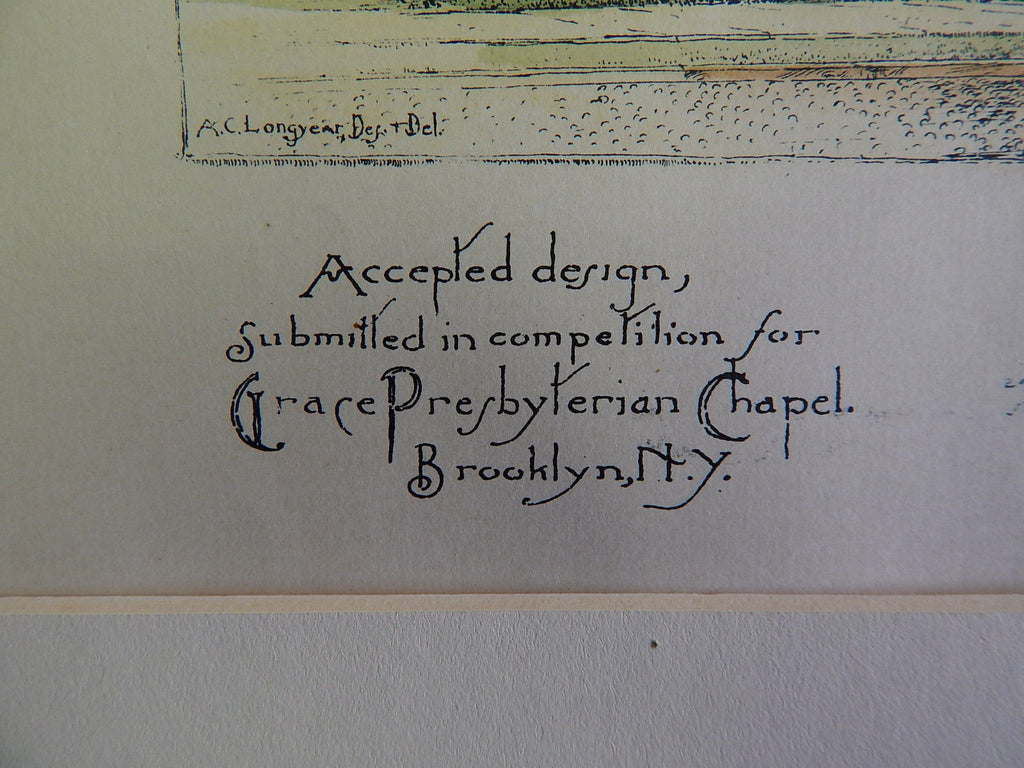 A.C. Longyear, Des. + Del.
Accepted design,
submitted in competition for
Grace Presbyterian Chapel.
Brooklyn, N.Y.